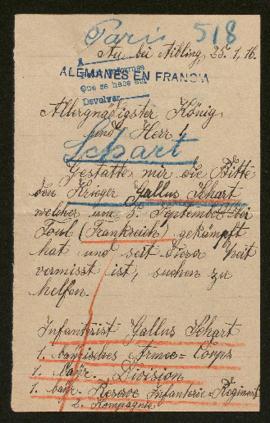 Paris
518
Au bei Aibling, 25.1.16.
que se hace al
Devolver
ALEMANES EN FRANCIA
Allergnädigster König
und Herr!
Schart
Gestatte mir die Bitte
den Krieger Gallus Schart
welcher am 5. September bei
Toul (Frankreich) gekämpft
hat und seit dieser Zeit
vermisst ist, suchen zu
helfen.
Infanterist Gallus Schart
1. bayrisches Armee-Corps
1. bayr. Division
1. bayr. Reserve Infanterie-Regiment
2. Kompagnie